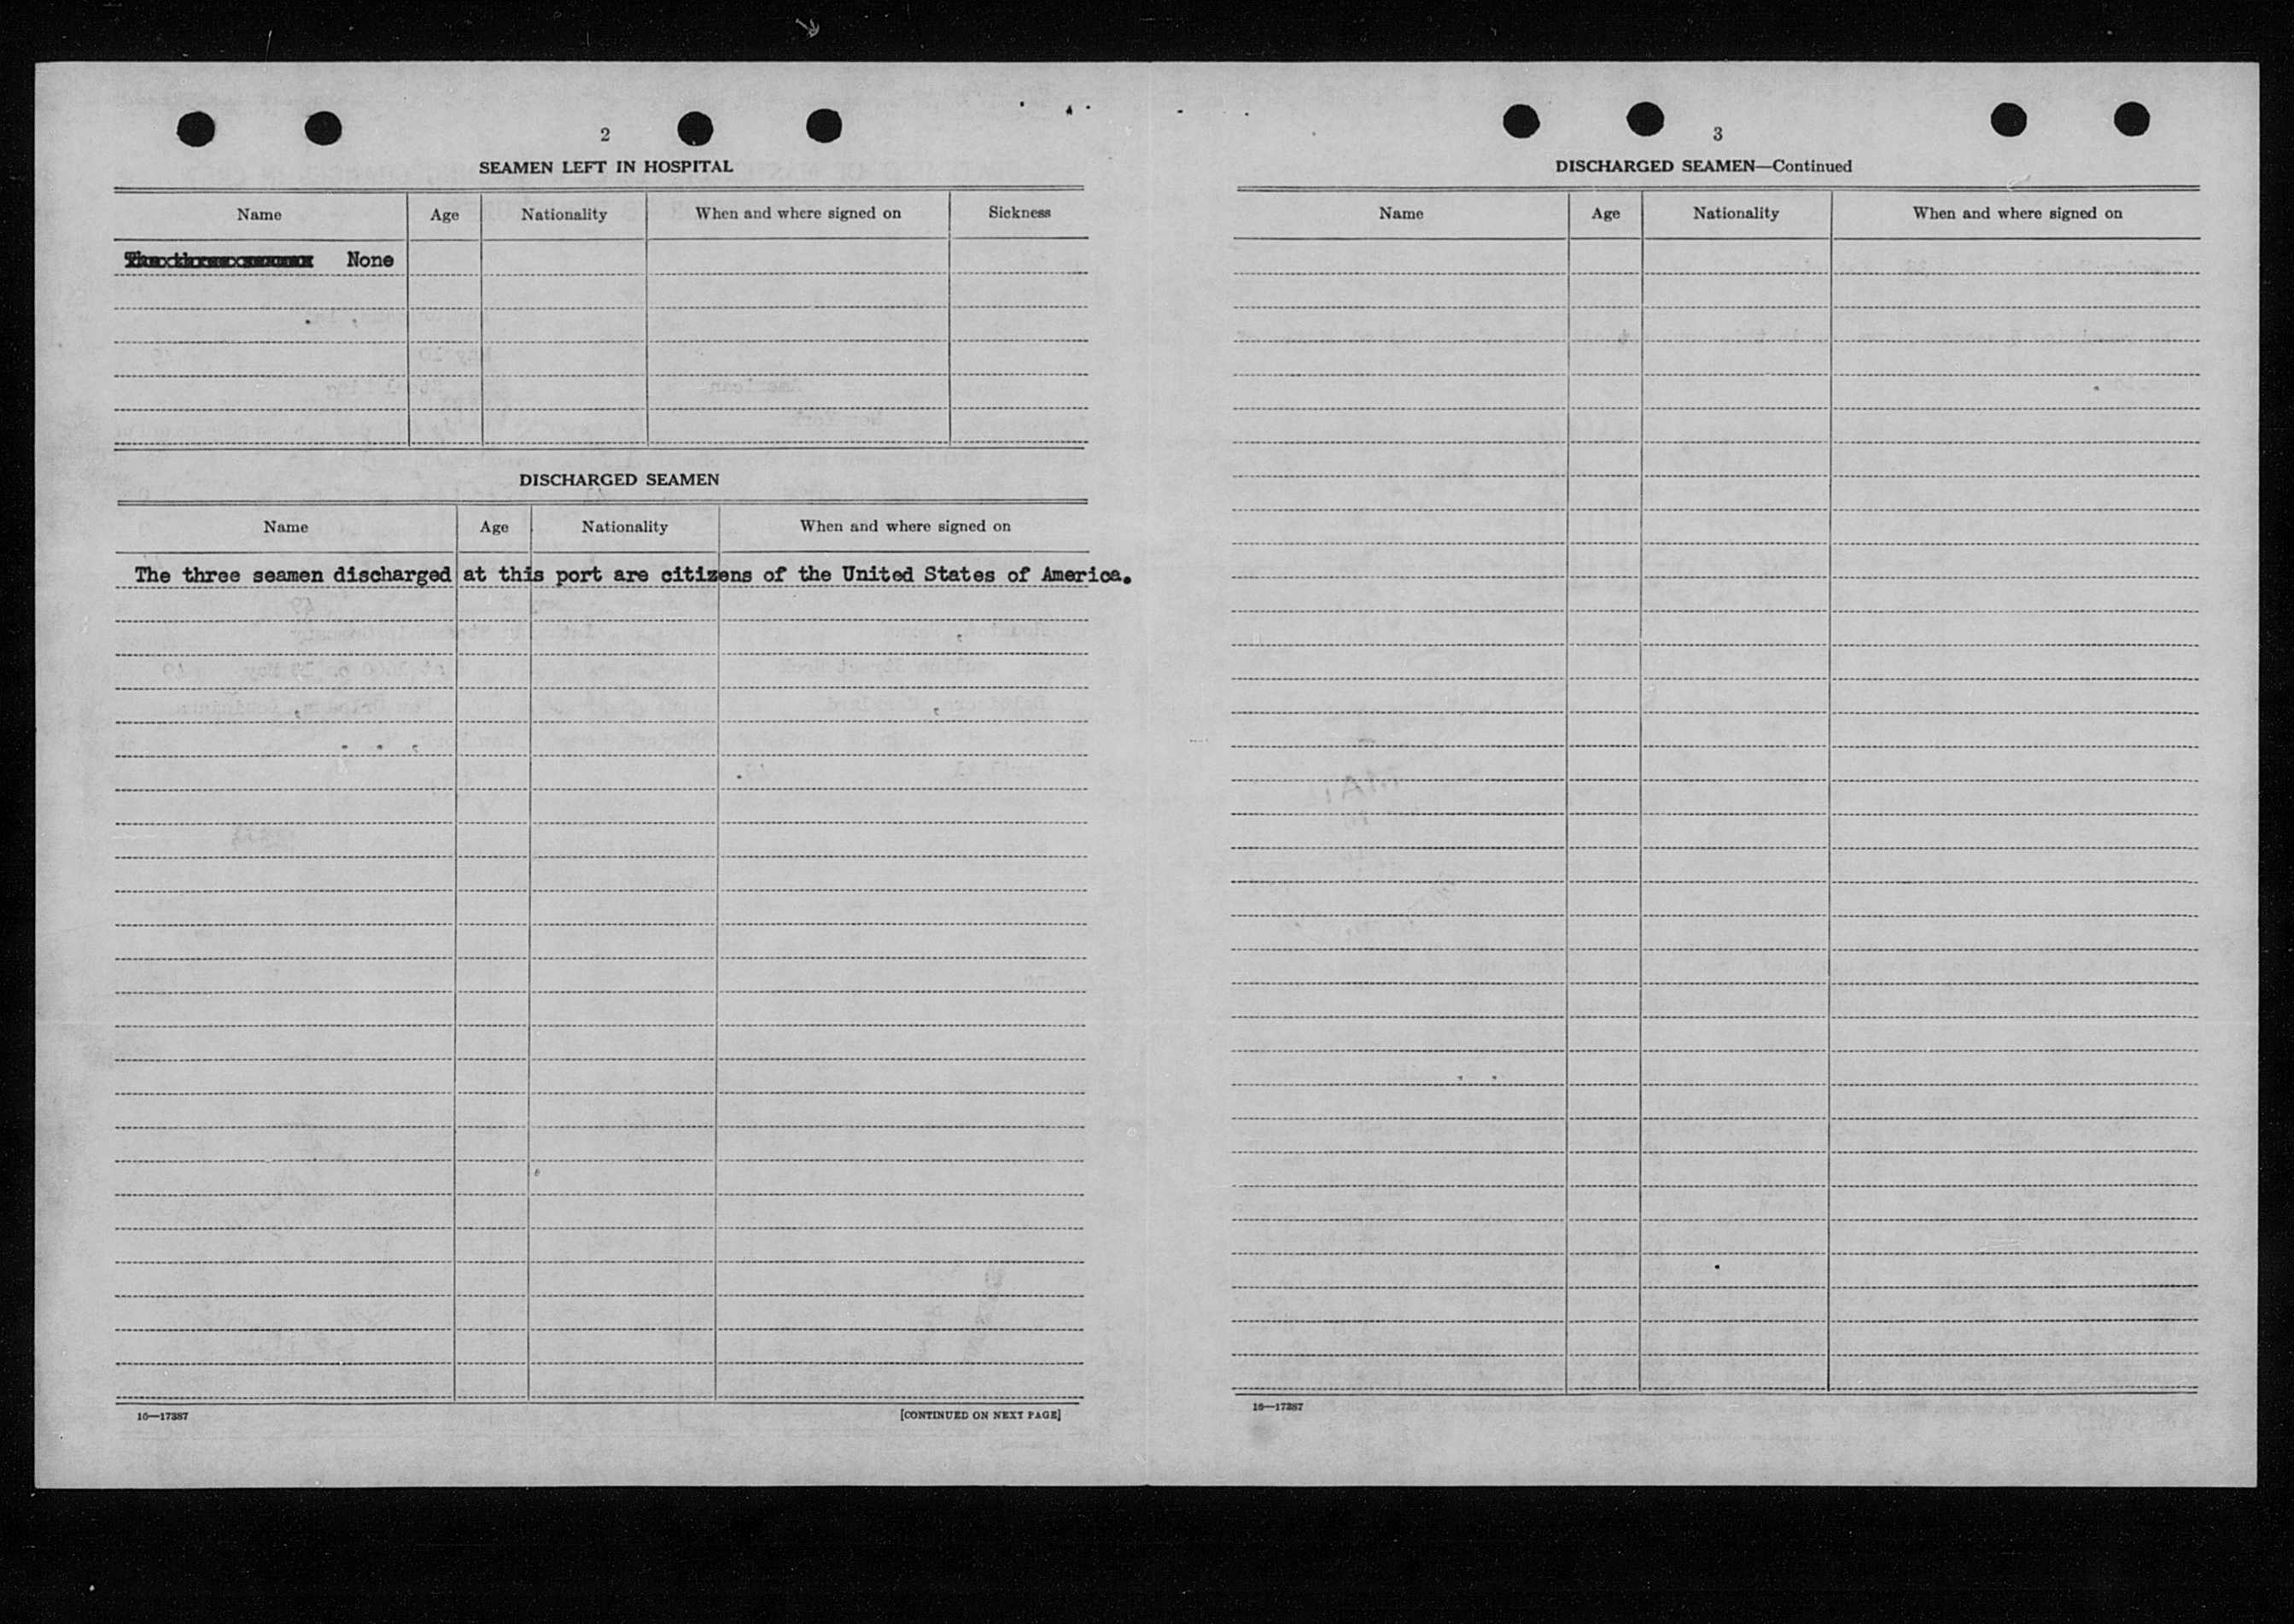 2
SEAMEN LEFT IN HOSPITAL
Name Age Nationality When and where signed on Sickness
None
DISCHARGED SEAMEN
Name Age Nationality When and where signed on
The three seamen discharged at this port are citizens of the United States of America.
16—17387
[CONTINUED ON NEXT PAGE]
3
DISCHARGED SEAMEN—Continued
Name Age Nationality When and where signed on
16—17387